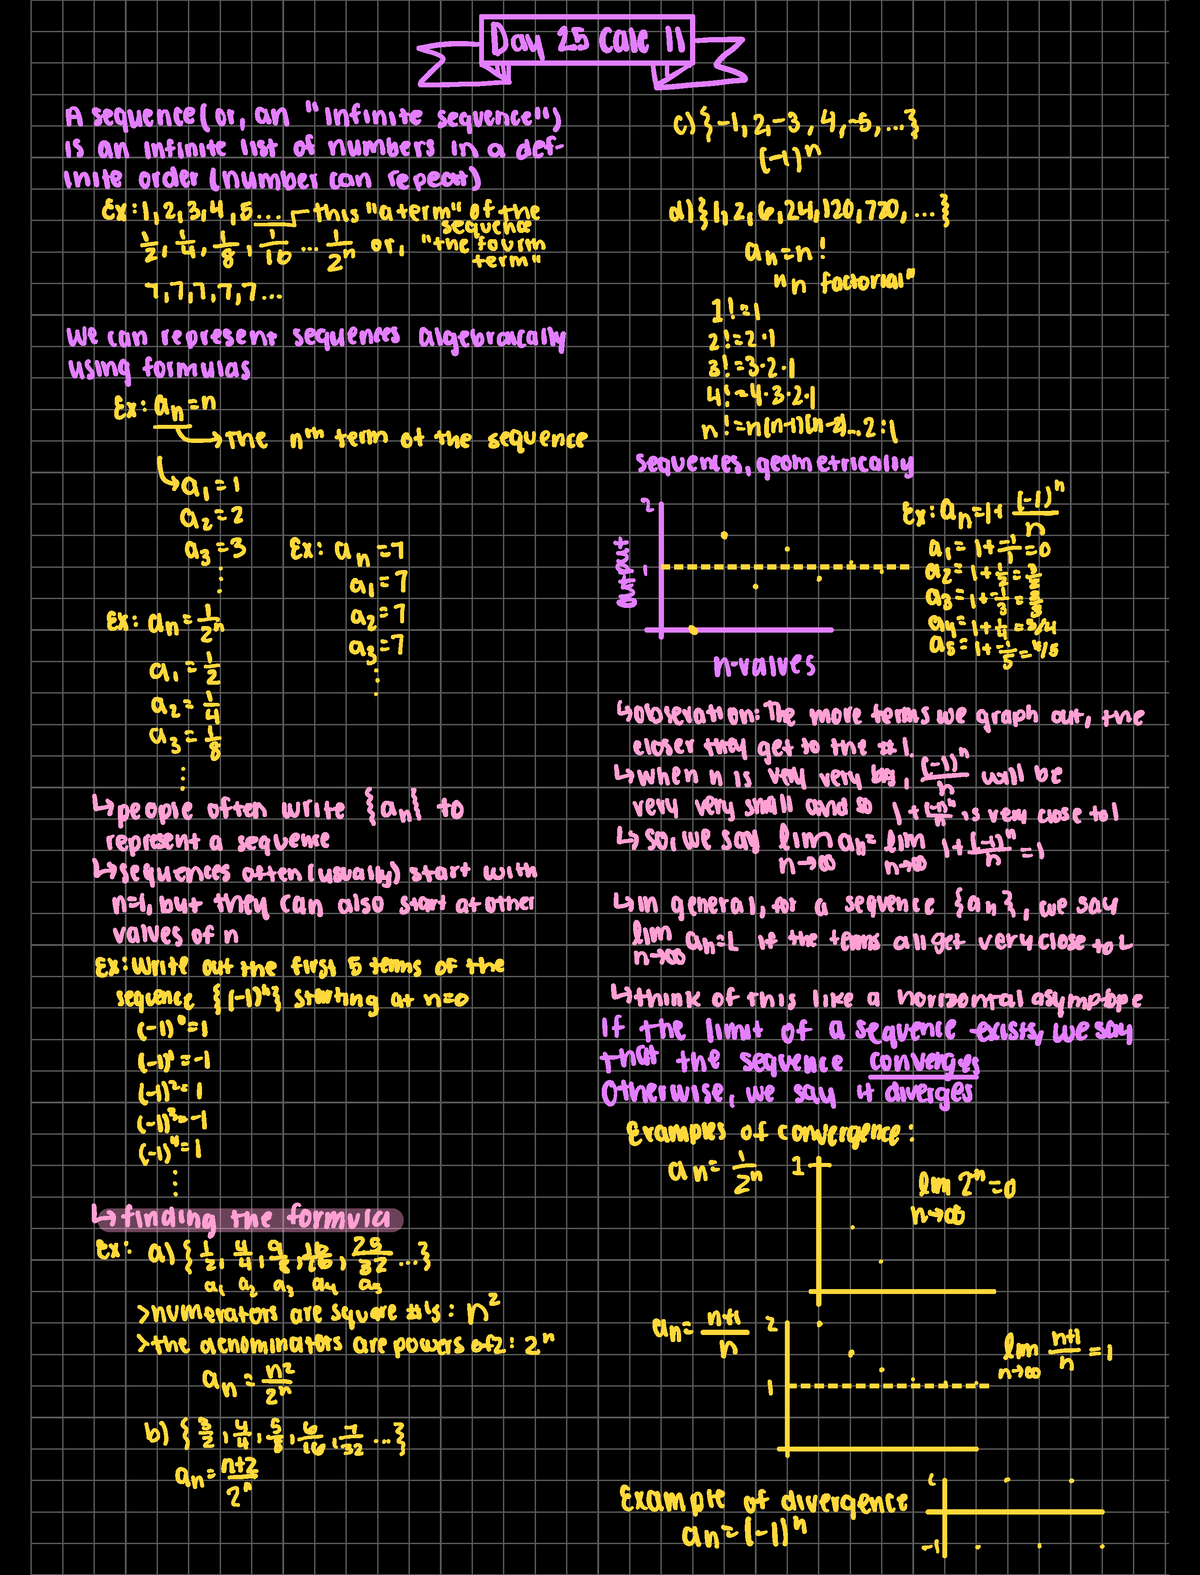 Day 25 Calc II
A sequence (or, an "infinite sequence")
is an infinite list of numbers in a def-
inite order (number can repeat)
Ex: 1, 2, 3, 4, 5... this "a term" of the sequence
1/2, 1/4, 1/8, 1/16 ... 1/2^n or, "the fourth term"
7, 7, 7, 7, 7...
We can represent sequences algebraically
using formulas
Ex: a_n = n
→ The n^th term of the sequence
→ a_1 = 1
a_2 = 2
a_3 = 3
⋮
Ex: a_n = 7
a_1 = 7
a_2 = 7
a_3 = 7
⋮
Ex: a_n = 1/2^n
a_1 = 1/2
a_2 = 1/4
a_3 = 1/8
⋮
↳ people often write {a_n} to
represent a sequence
↳ sequences often (usually) start with
n=1, but they can also start at other
values of n
Ex: Write out the first 5 terms of the
sequence {(-1)^n} starting at n=0
(-1)^0 = 1
(-1)^1 = -1
(-1)^2 = 1
(-1)^3 = -1
(-1)^4 = 1
⋮
↳ finding the formula
Ex: a) {1/2, 4/4, 9/8, 16/16, 25/32 ...}
a_1 a_2 a_3 a_4 a_5
> numerators are square #'s: n^2
> the denominators are powers of 2: 2^n
a_n = n^2/2^n
b) {3/2, 4/4, 5/8, 6/16, 7/32 ...}
a_n = n+2/2^n
c) {-1, 2, -3, 4, -5, ...}
(-1)^n
d) {1, 2, 6, 24, 120, 720, ...}
a_n = n!
"n factorial"
1! = 1
2! = 2·1
3! = 3·2·1
4! = 4·3·2·1
n! = n(n-1)(n-2)...2·1
sequences, geometrically
2
1
output
n-values
Ex: a_n = 1 + (-1)^n/n
a_1 = 1 + -1/1 = 0
a_2 = 1 + 1/2 =
a_3 = 1 + -1/3 =
a_4 = 1 + 1/4 = 5/4
a_5 = 1 + -1/5 = 4/5
↳ observation: The more terms we graph out, the
closer they get to the # 1.
↳ when n is very very big, (-1)^n/n will be
very very small and so 1 + (-1)^n/n is very close to 1
↳ so, we say lim n→∞ a_n = lim n→∞ 1 + (-1)^n/n = 1
↳ in general, for a sequence {a_n}, we say
lim n→∞ a_n = L if the terms all get very close to L
↳ think of this like a horizontal asymptope
If the limit of a sequence exists, we say
that the sequence converges
Otherwise, we say it diverges
Examples of convergence:
a_n = 1/2^n
1
lim n→∞ 2^n = 0
a_n = n+1/n
2
1
lim n→∞ n+1/n = 1
Example of divergence
a_n = (-1)^n
-1